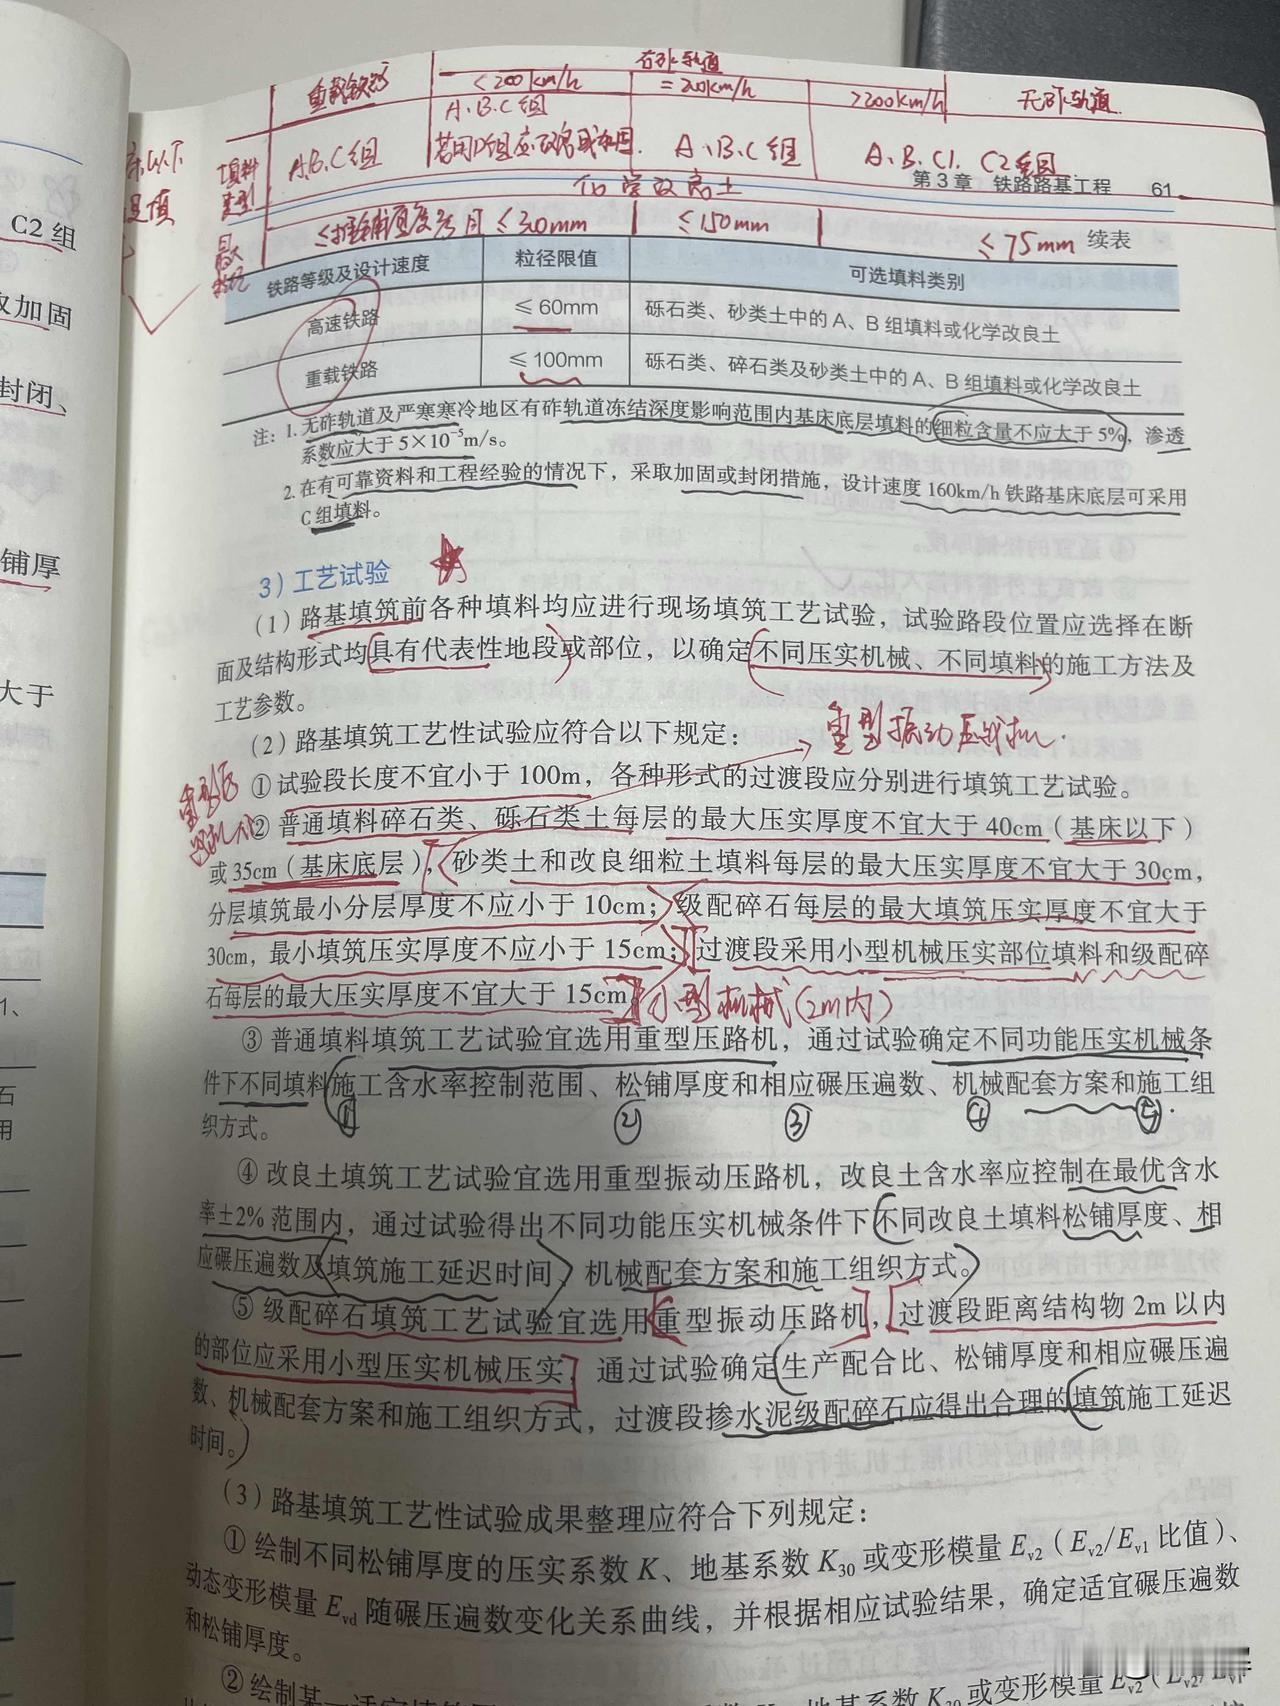 有砟轨道
重载铁路 <200km/h =200km/h >200km/h 无砟轨道
A.B.C组
填料类型 A.B.C组 若用D组应改良或加固. A、B、C组 A、B、C1、C2组
第3章 铁路路基工程 61
化学改良土
≤300mm ≤150mm ≤75mm 续表
铁路等级及设计速度 粒径限值 可选填料类别
高速铁路 ≤60mm 砾石类、砂类土中的A、B组填料或化学改良土
重载铁路 ≤100mm 砾石类、碎石类及砂类土中的A、B组填料或化学改良土
注:1.无砟轨道及严寒寒冷地区有砟轨道冻结深度影响范围内基床底层填料的细粒含量不应大于5%,渗透
系数应大于5×10⁻⁵m/s。
2.在有可靠资料和工程经验的情况下,采取加固或封闭措施,设计速度160km/h铁路基床底层可采用
C组填料。
3)工艺试验
(1)路基填筑前各种填料均应进行现场填筑工艺试验,试验路段位置应选择在断
面及结构形式均具有代表性地段或部位,以确定不同压实机械、不同填料的施工方法及
工艺参数。
(2)路基填筑工艺性试验应符合以下规定:
重型振动压路机.
①试验段长度不宜小于100m,各种形式的过渡段应分别进行填筑工艺试验。
重型压路机
②普通填料碎石类、砾石类土每层的最大压实厚度不宜大于40cm(基床以下)
或35cm(基床底层),砂类土和改良细粒土填料每层的最大压实厚度不宜大于30cm,
分层填筑最小分层厚度不应小于10cm;级配碎石每层的最大填筑压实厚度不宜大于
30cm,最小填筑压实厚度不应小于15cm;过渡段采用小型机械压实部位填料和级配碎
石每层的最大压实厚度不宜大于15cm。小型机械(2m内)
③普通填料填筑工艺试验宜选用重型压路机,通过试验确定不同功能压实机械条
件下不同填料施工含水率控制范围、松铺厚度和相应碾压遍数、机械配套方案和施工组
① ② ③ ④ ⑤
织方式。
④改良土填筑工艺试验宜选用重型振动压路机,改良土含水率应控制在最优含水
率±2%范围内,通过试验得出不同功能压实机械条件下不同改良土填料松铺厚度、相
应碾压遍数及填筑施工延迟时间、机械配套方案和施工组织方式。
⑤级配碎石填筑工艺试验宜选用重型振动压路机,过渡段距离结构物2m以内
的部位应采用小型压实机械压实,通过试验确定生产配合比、松铺厚度和相应碾压遍
数、机械配套方案和施工组织方式,过渡段掺水泥级配碎石应得出合理的填筑施工延迟
时间。
(3)路基填筑工艺性试验成果整理应符合下列规定:
①绘制不同松铺厚度的压实系数K、地基系数K30或变形模量Ev2(Ev2/Ev1比值)、
动态变形模量Evd随碾压遍数变化关系曲线,并根据相应试验结果,确定适宜碾压遍数
和松铺厚度。
②绘制某一适宜填筑
地基系数K30或变形模量Ev2(Ev2/Ev1
C2组
取加固
封闭、
铺厚
大于